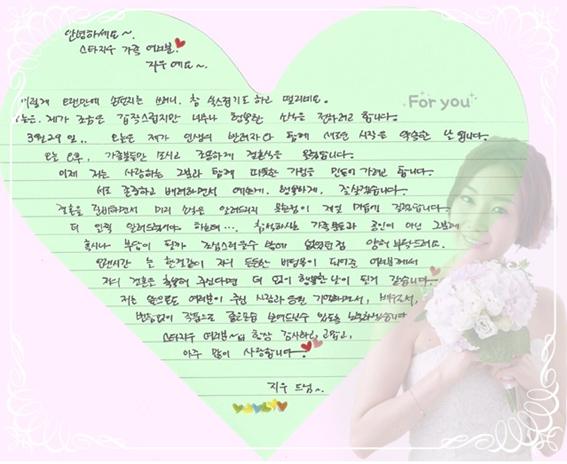 안녕하세요~
스타지우 가족 여러분.
지우 예요~.
For you
이렇게 오랜만에 손편지를 쓰려니, 참 쑥스럽기도 하고 떨리네요.
오늘은, 제가 조금은 갑작스럽지만 너무나 행복한 소식을 전하려고 합니다.
3월 29일.. 오늘은 제가 인생의 반려자와 함께 새로운 시작을 약속한 날입니다.
오늘 오후, 가족분들만 모시고 조용하게 결혼식을 올렸습니다.
이제 저는 사랑하는 그분과 함께 따뜻한 가정을 만들어 가려고 합니다.
서로 존중하고 배려하면서 예쁘게, 행복하게, 잘 살겠습니다.
결혼을 준비하면서 미리 소식을 알려드리지 못한 점이 제일 마음에 걸렸습니다.
더 일찍 알려드렸어야 하는데..., 참석하시는 가족분들과 공인이 아닌 그분께
혹시나 부담이 될까 조심스러울수 밖에 없었던점 양해 부탁드려요.
오랜시간 늘 한결같이 저의 든든한 버팀목이 되어준 여러분께서
저의 결혼을 축복해 주신다면 더 없이 행복한 날이 될거 같습니다.
저는 앞으로도 여러분이 주신 사랑과 응원 기억하면서, 배우로서,
변함없이 작품으로 좋은모습 보여드릴수 있도록 노력하겠습니다.
스타지우 여러분~ 항상 감사하고, 고맙고,
아주 많이 사랑합니다.
지우 드림~.